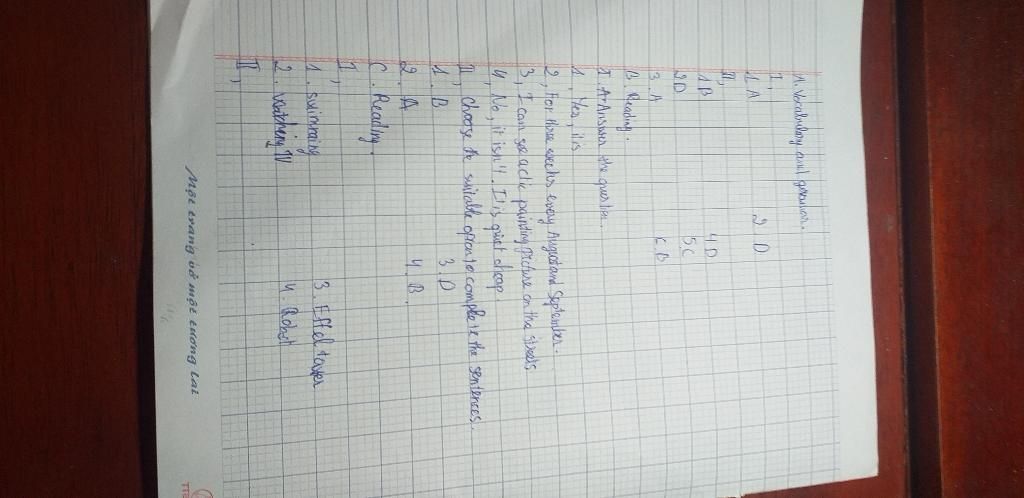 A. Vocabulary and grammar.
I,
1 A 2. D
II,
1B 4D
2D 5C
3. A 6. B
B. Reading.
I. A. Answer the question.
1, Yes, it is
2, For three weeks every August and September.
3, I can see actic painting picture on the streets
4, No, it isn't. It is quiet cheap.
II, Choose the suitable option to complete the sentences.
1. B 3. D
2. A 4. B.
C. Reading.
I,
1. swimming 3. Effel tower
2. Watching TV 4. Robot
II,
Một trang vở một tương lai